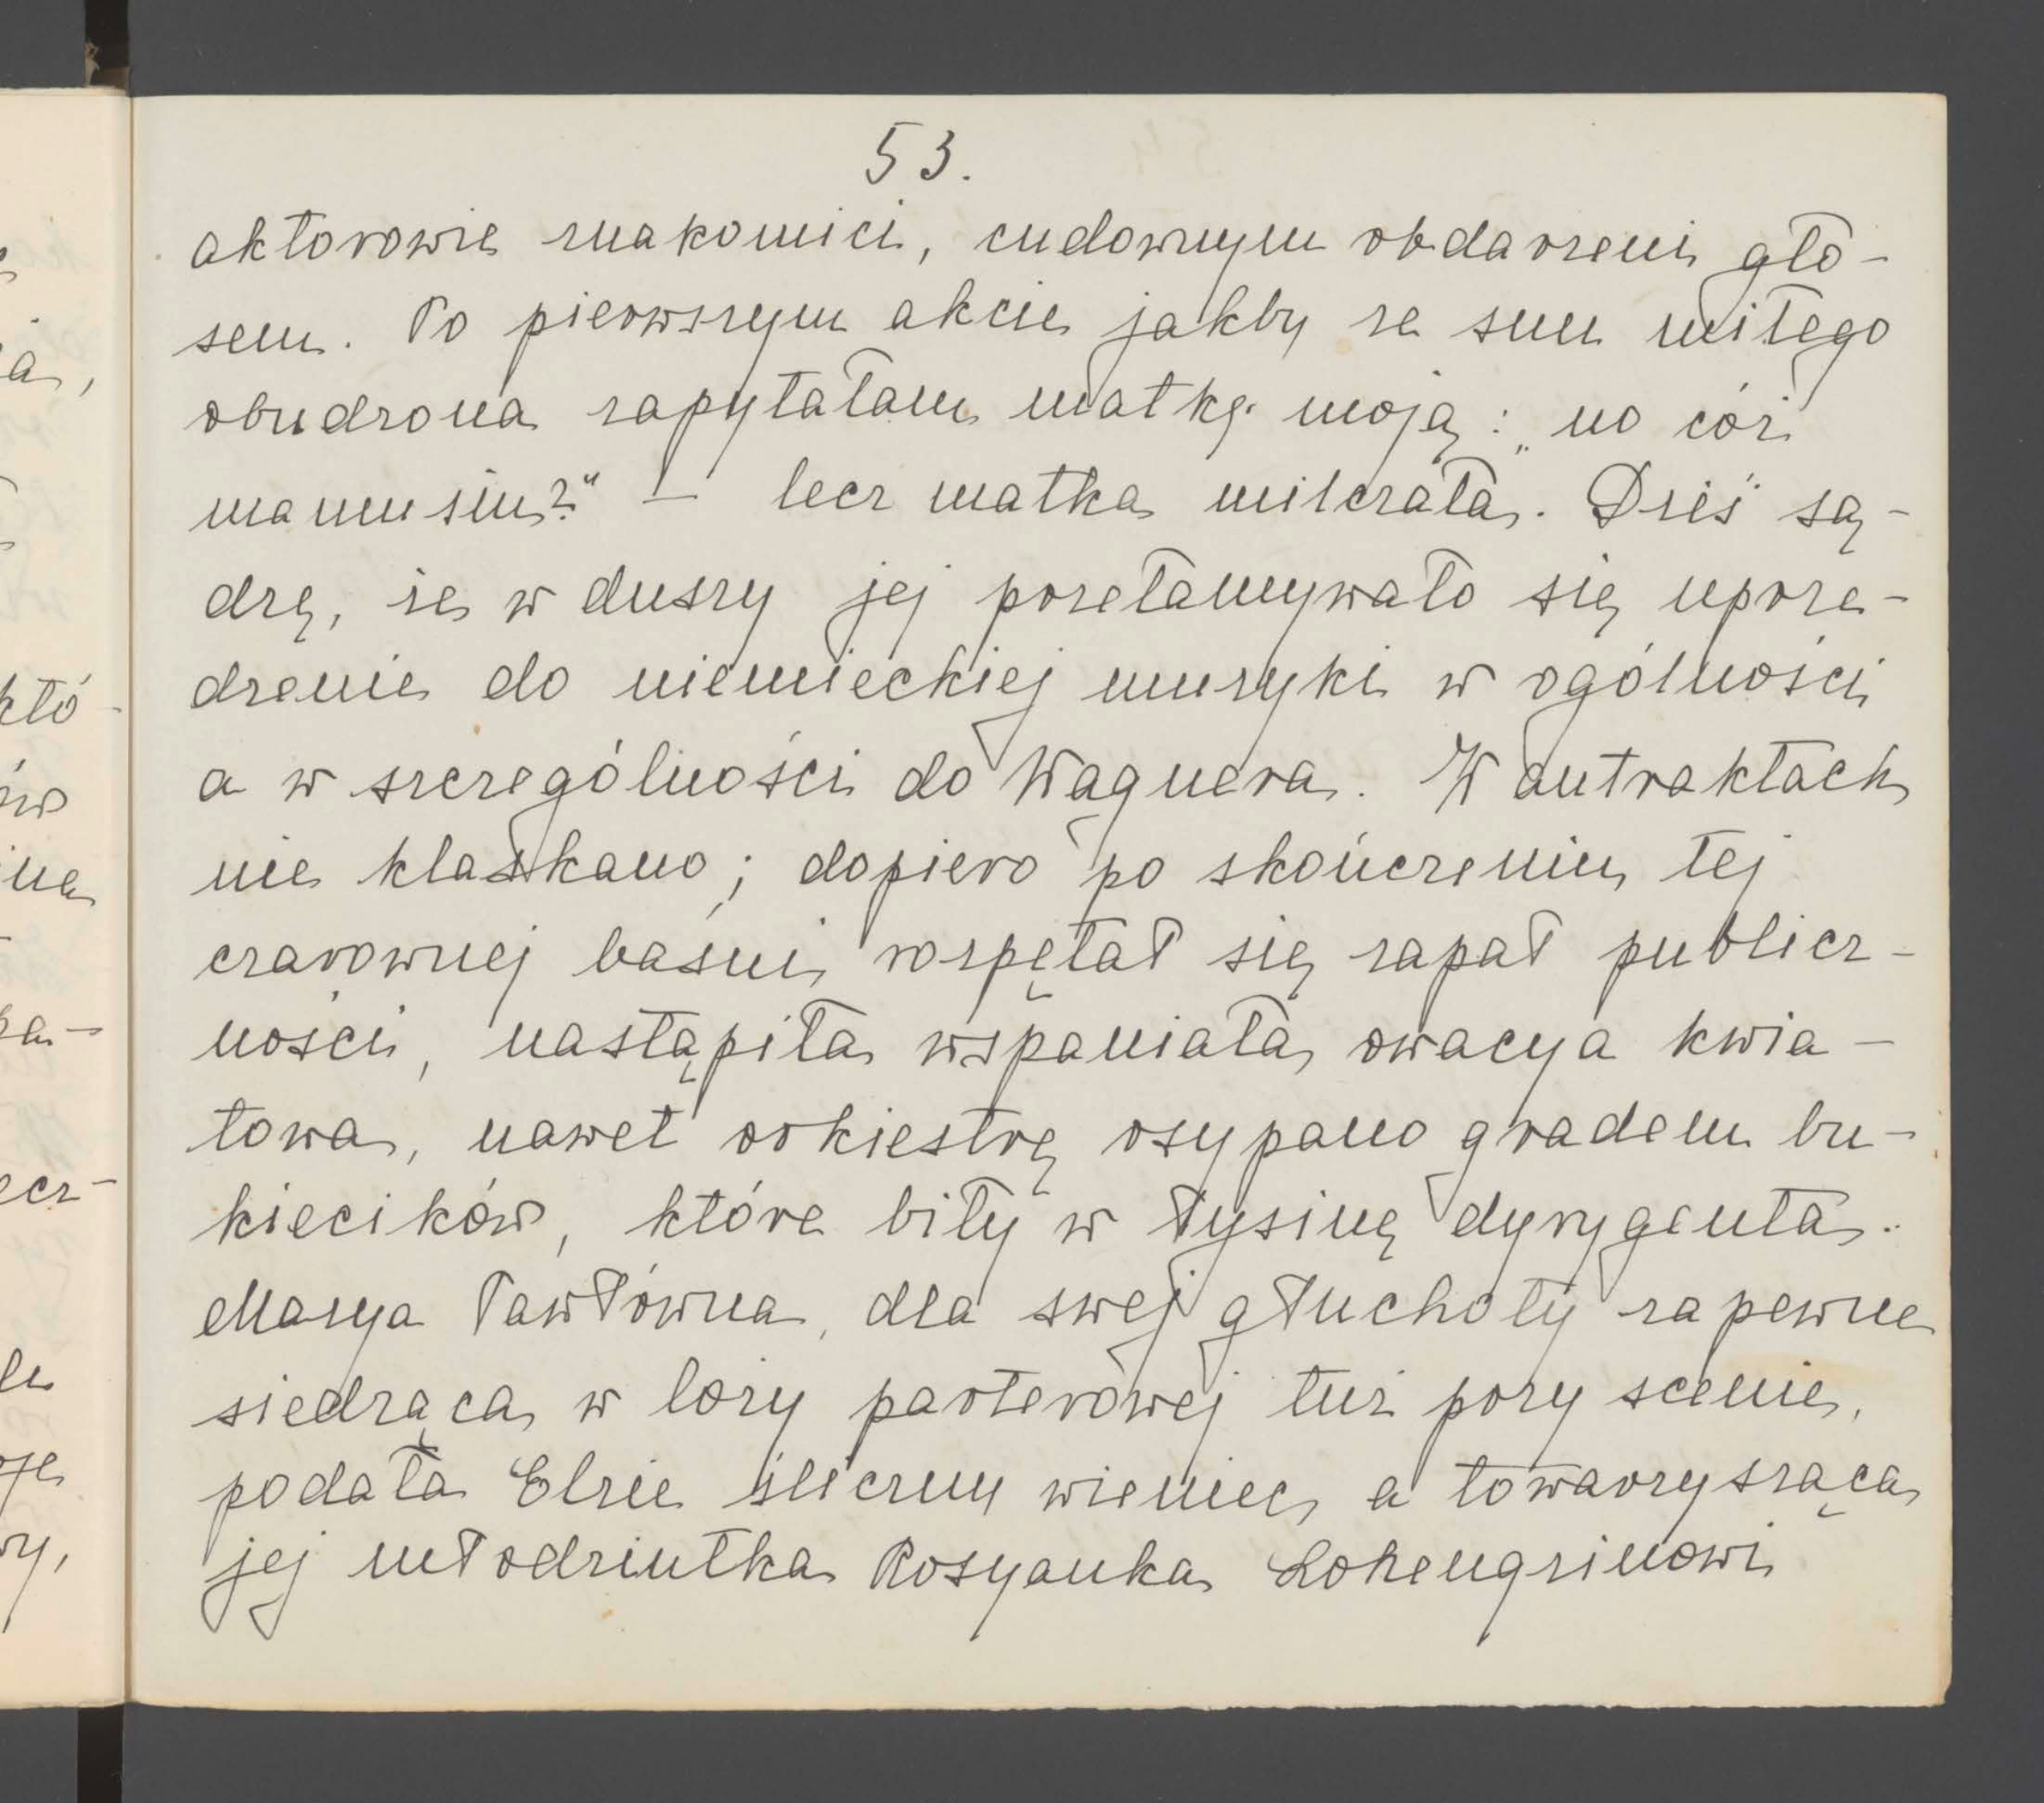 53.
aktorowie znakomici, cudownym obdarzeni gło-
sem. Po pierwszym akcie jakby ze snu miłego
obudzona zapytałam matkę moją: „no cóż
mamusiu?" — lecz matka milczała. Dziś są-
dzę, że w duszy jej przełamywało się uprze-
dzenie do niemieckiej muzyki w ogólności
a w szczególności do Wagnera. W antraktach
nie klaskano; dopiero po skończeniu tej
czarownej baśni rozpętał się zapał publicz-
ności, nastąpiła wspaniała owacya kwia-
towa, nawet orkiestrę osypano gradem bu-
kiecików, które biły w łysinę dyrygenta.
Marya Pawłówna, dla swej głuchoty zapewne
siedząca w loży parterowej tuż przy scenie,
podała Elzie śliczny wieniec, a towarzysząca
jej młodziutka Rosyanka Lohengrinowi